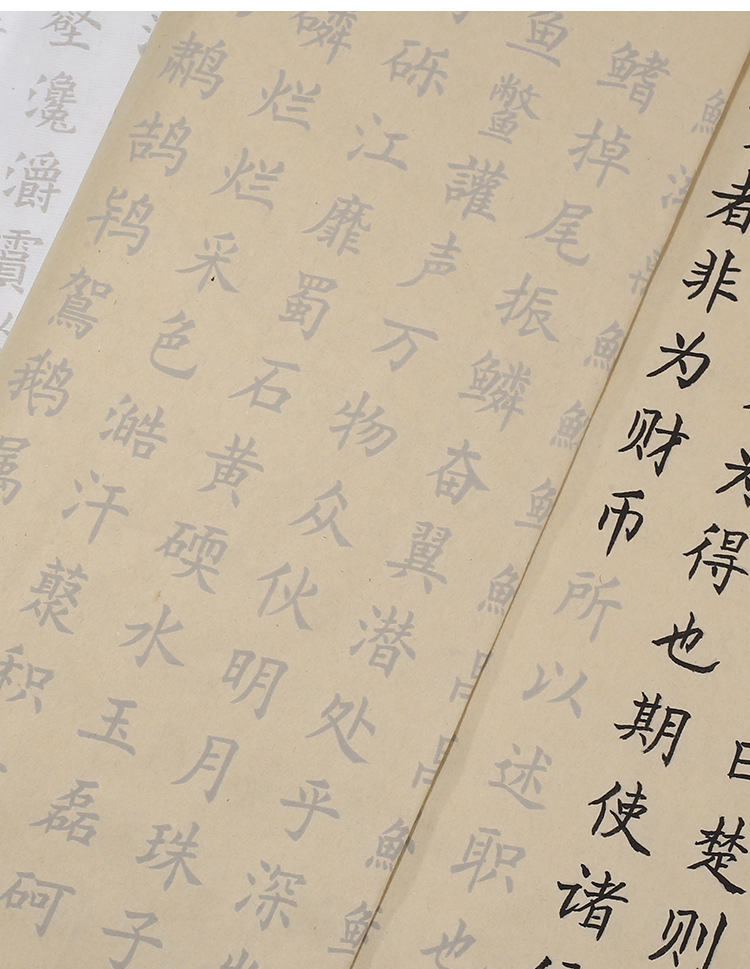 曰楚则
为得也期使诸
者非为财币所以述职也
鳍掉尾振鳞奋翼潜处乎深
鱼鳖讙声万物众伙明月珠子
砾江靡蜀石黄碝水玉磊砢
磷烂烂采色澔汗藂积
鹔鹄鸨鴐鹅属
瀺灂霣